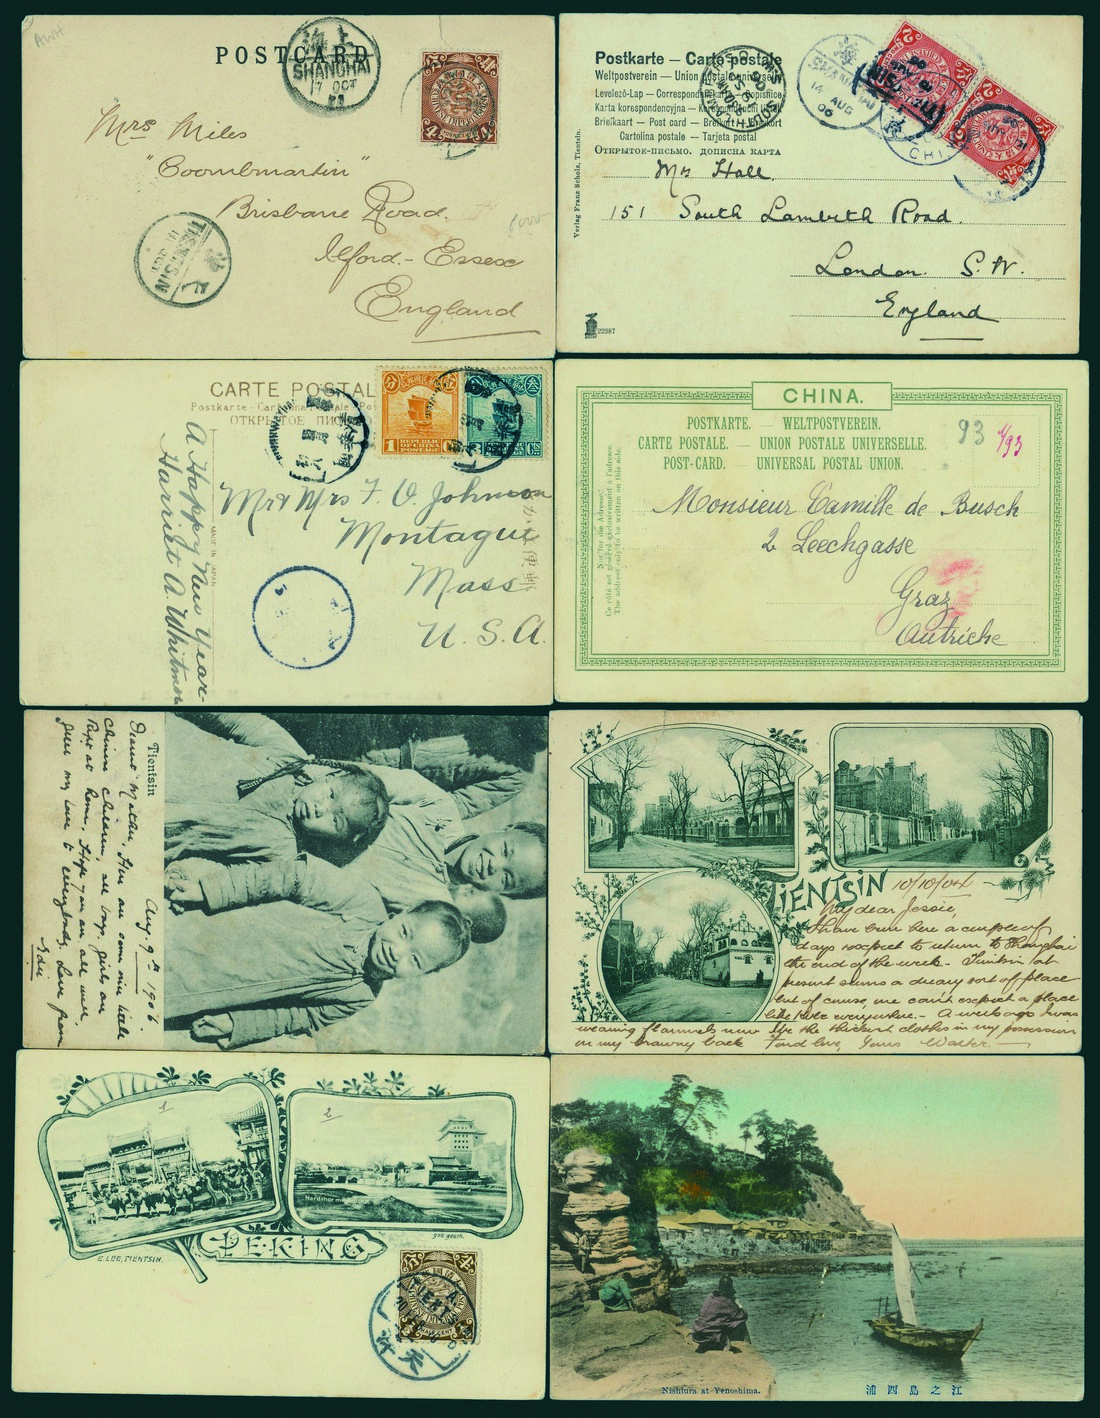 AWH
POSTCARD
上海
SHANGHAI
17 OCT
Mrs Miles
"Coombmartin"
Brisbane Road.
Ilford - Essex
England
TIENTSIN
Postkarte — Carte postale
Weltpostverein — Union postale universelle
Levelező-Lap — Correspondenzkarte — Dopisnice
Karta korespondencyjna — Korespondenční lístek
Briefkaart — Post card — Brevkort — Brefkort
Cartolina postale — Tarjeta postal
ОТКРЫТОЕ-ПИСЬМО. ДОПИСНА КАРТА
Verlag Franz Scholz, Tientsin.
SHANGHAI
14 AUG
06
CHI
Mrs Hall.
151 South Lambeth Road.
London. S. W.
England
22387
CARTE POSTALE
Postkarte — Carte
ОТКРЫТОЕ
1
REPUBLIC OF CHINA
A Happy New Year
Harriet A. Whitmore
MADE IN JAPAN
Mr & Mrs F. O. Johnson
Montague
Mass
U. S. A.
CHINA.
POSTKARTE. — WELTPOSTVEREIN.
CARTE POSTALE. — UNION POSTALE UNIVERSELLE.
POST-CARD. — UNIVERSAL POSTAL UNION.
93
4/93
Nur für die Adresse.
Ce côté est réservé exclusivement à l'adresse.
The address only to be written on this side.
Monsieur Camille de Busch
2 Leechgasse
Graz
Autriche
Tientsin
Aug. 9th 1906.
Dearest Mother, Here are some nice little
Chinese children, all boys, girls are
kept at home. Hope you are all well,
give my love to everybody. Love from
TIENTSIN
10/10/04
My dear Jessie,
I have been here a couple of
days & expect to return to Shanghai
the end of the week - Tientsin at
present seems a dreary sort of place
but of course, one can't expect a place
like Kobe everywhere. - A week ago I was
wearing flannels now I've the thickest clothes in my possession
on my brawny back Fond love, Yours Walter.
1
2
PEKING
E. LEE, TIENTSIN.
ges gesch.
天津
Nishiura at Yenoshima.
江之島西浦